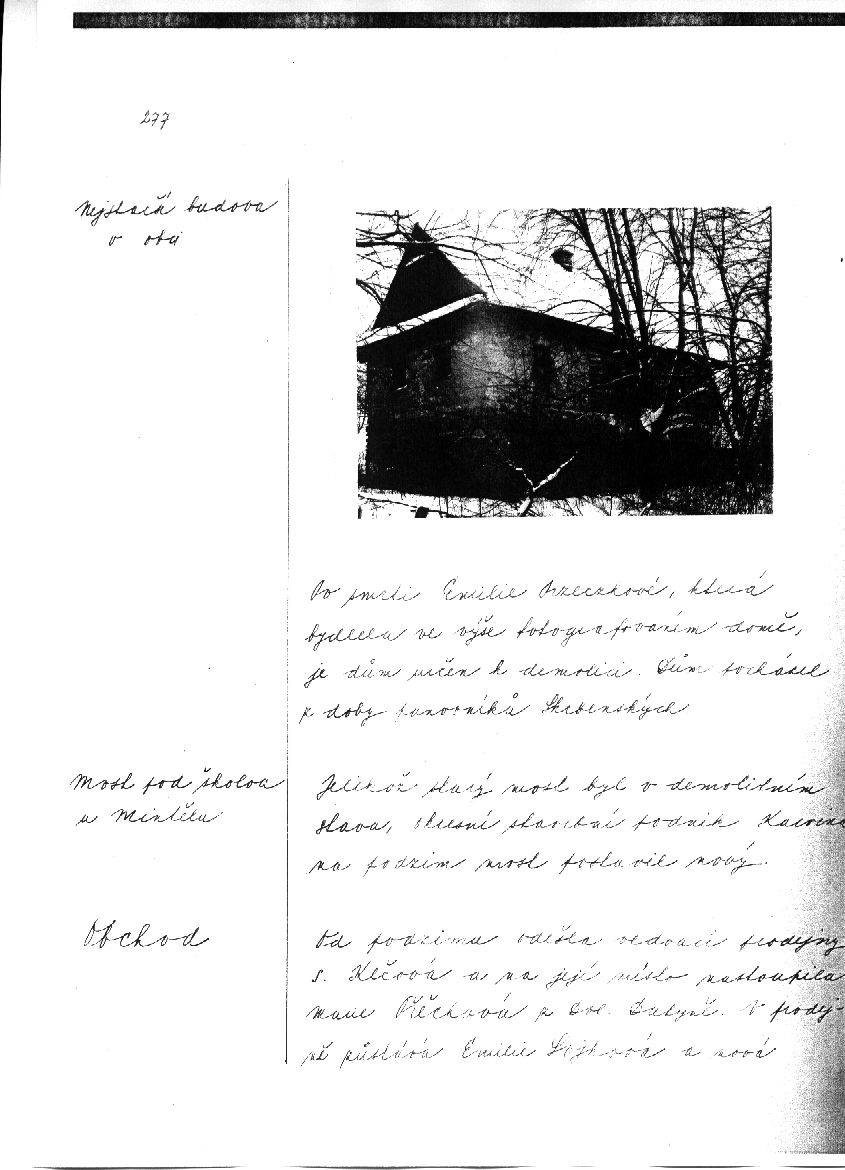 277
Nejstarší budova
v obci
Po smrti Emilie Brzeczkové, která
bydlela ve výše fotografovaném domě,
je dům určen k demolici. Dům pocházel
z doby panovníků Skrbenských
Most pod školou
u Mintěla
Jelikož starý most byl v demoličním
stavu, okresní stavební podnik Karviná
na podzim most postavil nový.
Obchod
Od podzimu odešla vedoucí prodejny
s. Klčová a na její místo nastoupila
Marie Pěchová z Dol. Datyně. V prodej-
ně zůstává Emilie Lojková a nová